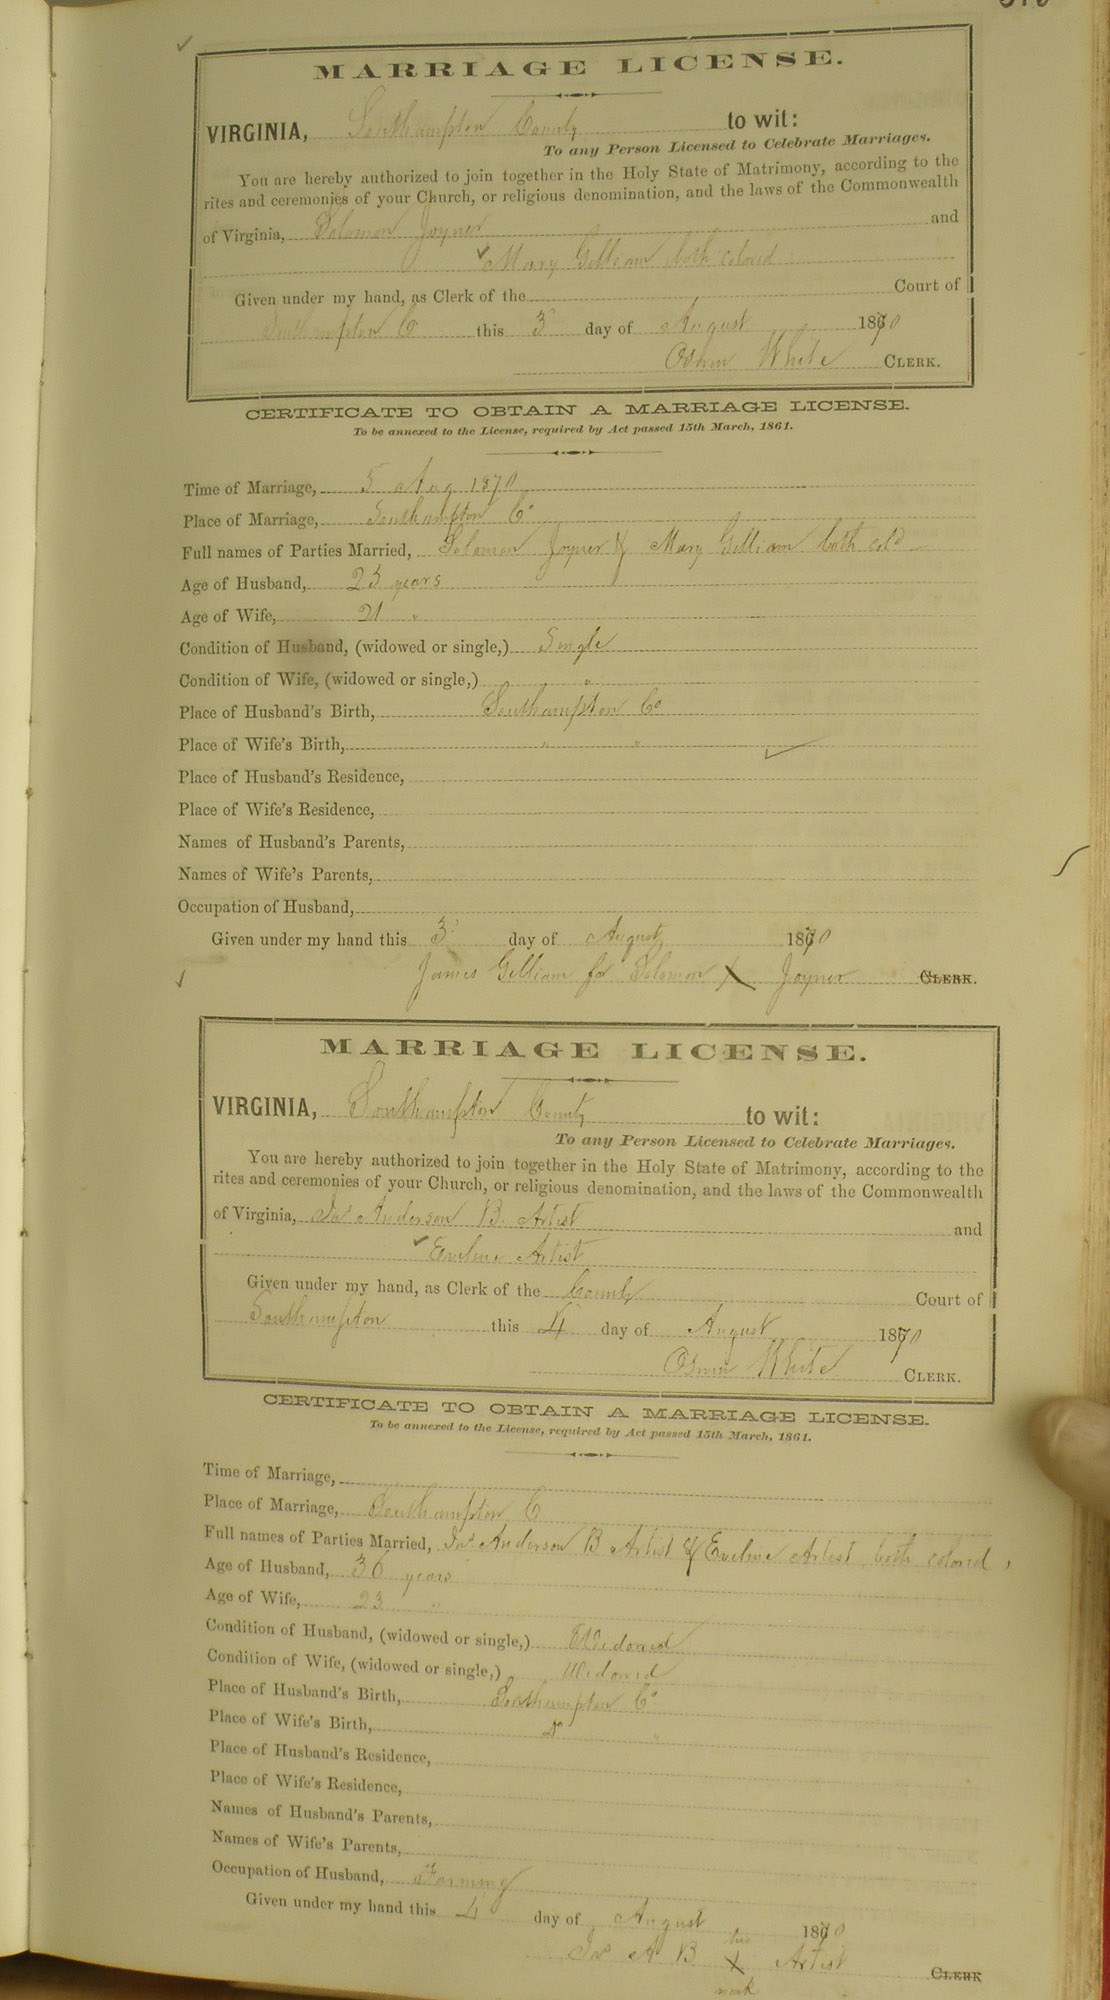 MARRIAGE LICENSE.
VIRGINIA, Southampton County to wit:
To any Person Licensed to Celebrate Marriages.
You are hereby authorized to join together in the Holy State of Matrimony, according to the
rites and ceremonies of your Church, or religious denomination, and the laws of the Commonwealth
of Virginia, Solomon Joyner and
Mary Gilliam both colored
Given under my hand, as Clerk of the Court of
Southampton Co this 3 day of August 1870
White CLERK.
CERTIFICATE TO OBTAIN A MARRIAGE LICENSE.
To be annexed to the License, required by Act passed 15th March, 1861.
Time of Marriage, 5 Aug 1870
Place of Marriage, Southampton Co
Full names of Parties Married, Solomon Joyner & Mary Gilliam both cold
Age of Husband, 25 years
Age of Wife, 21 "
Condition of Husband, (widowed or single,) Single
Condition of Wife, (widowed or single,) "
Place of Husband's Birth, Southampton Co
Place of Wife's Birth, " "
Place of Husband's Residence,
Place of Wife's Residence,
Names of Husband's Parents,
Names of Wife's Parents,
Occupation of Husband,
Given under my hand this 3 day of August 1870
James Gilliam for Solomon X Joyner CLERK.
MARRIAGE LICENSE.
VIRGINIA, Southampton County to wit:
To any Person Licensed to Celebrate Marriages.
You are hereby authorized to join together in the Holy State of Matrimony, according to the
rites and ceremonies of your Church, or religious denomination, and the laws of the Commonwealth
of Virginia, Jas Anderson B. Artist and
Eveline Artist
Given under my hand, as Clerk of the County Court of
Southampton this 4 day of August 1870
White CLERK.
CERTIFICATE TO OBTAIN A MARRIAGE LICENSE.
To be annexed to the License, required by Act passed 15th March, 1861.
Time of Marriage,
Place of Marriage, Southampton Co
Full names of Parties Married, Jas Anderson B Artist & Eveline Artist both colored
Age of Husband, 36 years
Age of Wife, 23 "
Condition of Husband, (widowed or single,) Widowed
Condition of Wife, (widowed or single,) Widowed
Place of Husband's Birth, Southampton Co
Place of Wife's Birth, Do "
Place of Husband's Residence,
Place of Wife's Residence,
Names of Husband's Parents,
Names of Wife's Parents,
Occupation of Husband, Farming
Given under my hand this 4 day of August 1870
his
Jas A B X Artist CLERK
mark